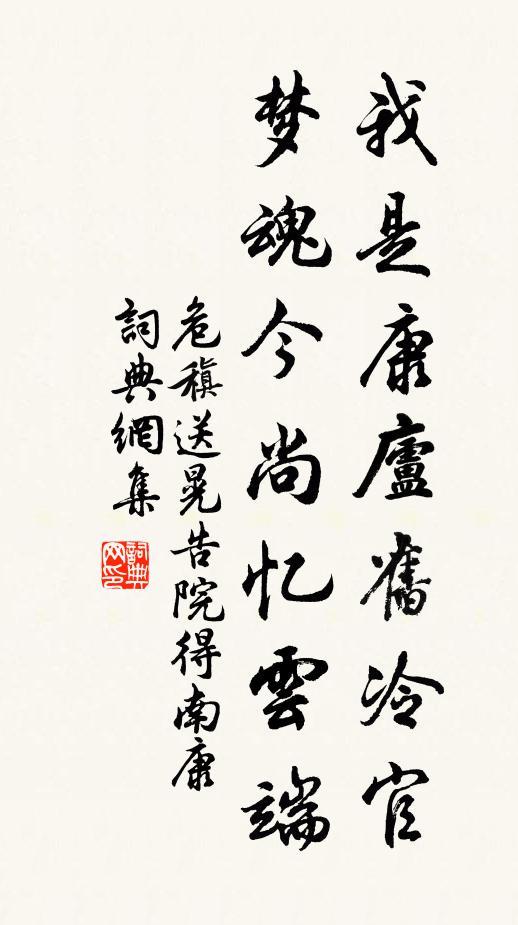 我是康廬舊冷官
梦魂今尚忆雲端
危稹送晃告院得南康
詞典網集
詞典网印